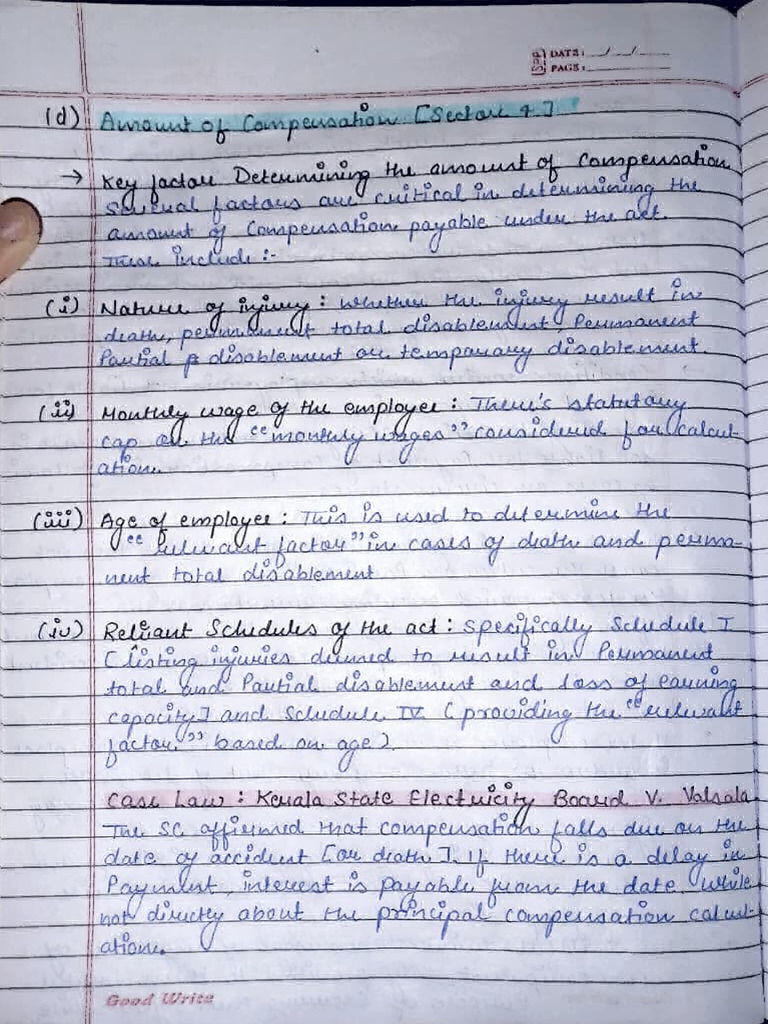 DATE: __/__/__
PAGE:
(d) Amount of Compensation [Section 4]
→ Key factor Determining the amount of Compensation
Several factors are critical in determining the
amount of Compensation payable under the act.
These include :-
(i) Nature of injury : whether the injury result in
death, permanent total disablement, Permanent
Partial disablement or temporary disablement.
(ii) Monthly wage of the employee : There's statutary
cap on the "monthly wages" considered for calcul-
ation.
(iii) Age of employee : This is used to determine the
"relevant factor" in cases of death and perma-
nent total disablement
(iv) Relevant Schedules of the act : Specifically Schedule I
(listing injuries deemed to result in Permanent
total and Partial disablement and loss of earning
capacity] and Schedule IV (providing the "relevant
factor" based on age).
Case Law : Kerala State Electricity Board V. Valsala
The SC affirmed that compensation falls due on the
date of accident [or death]. If there is a delay in
Payment, interest is payable from the date while
not directly about the principal compensation calcul-
ation.
Good Write